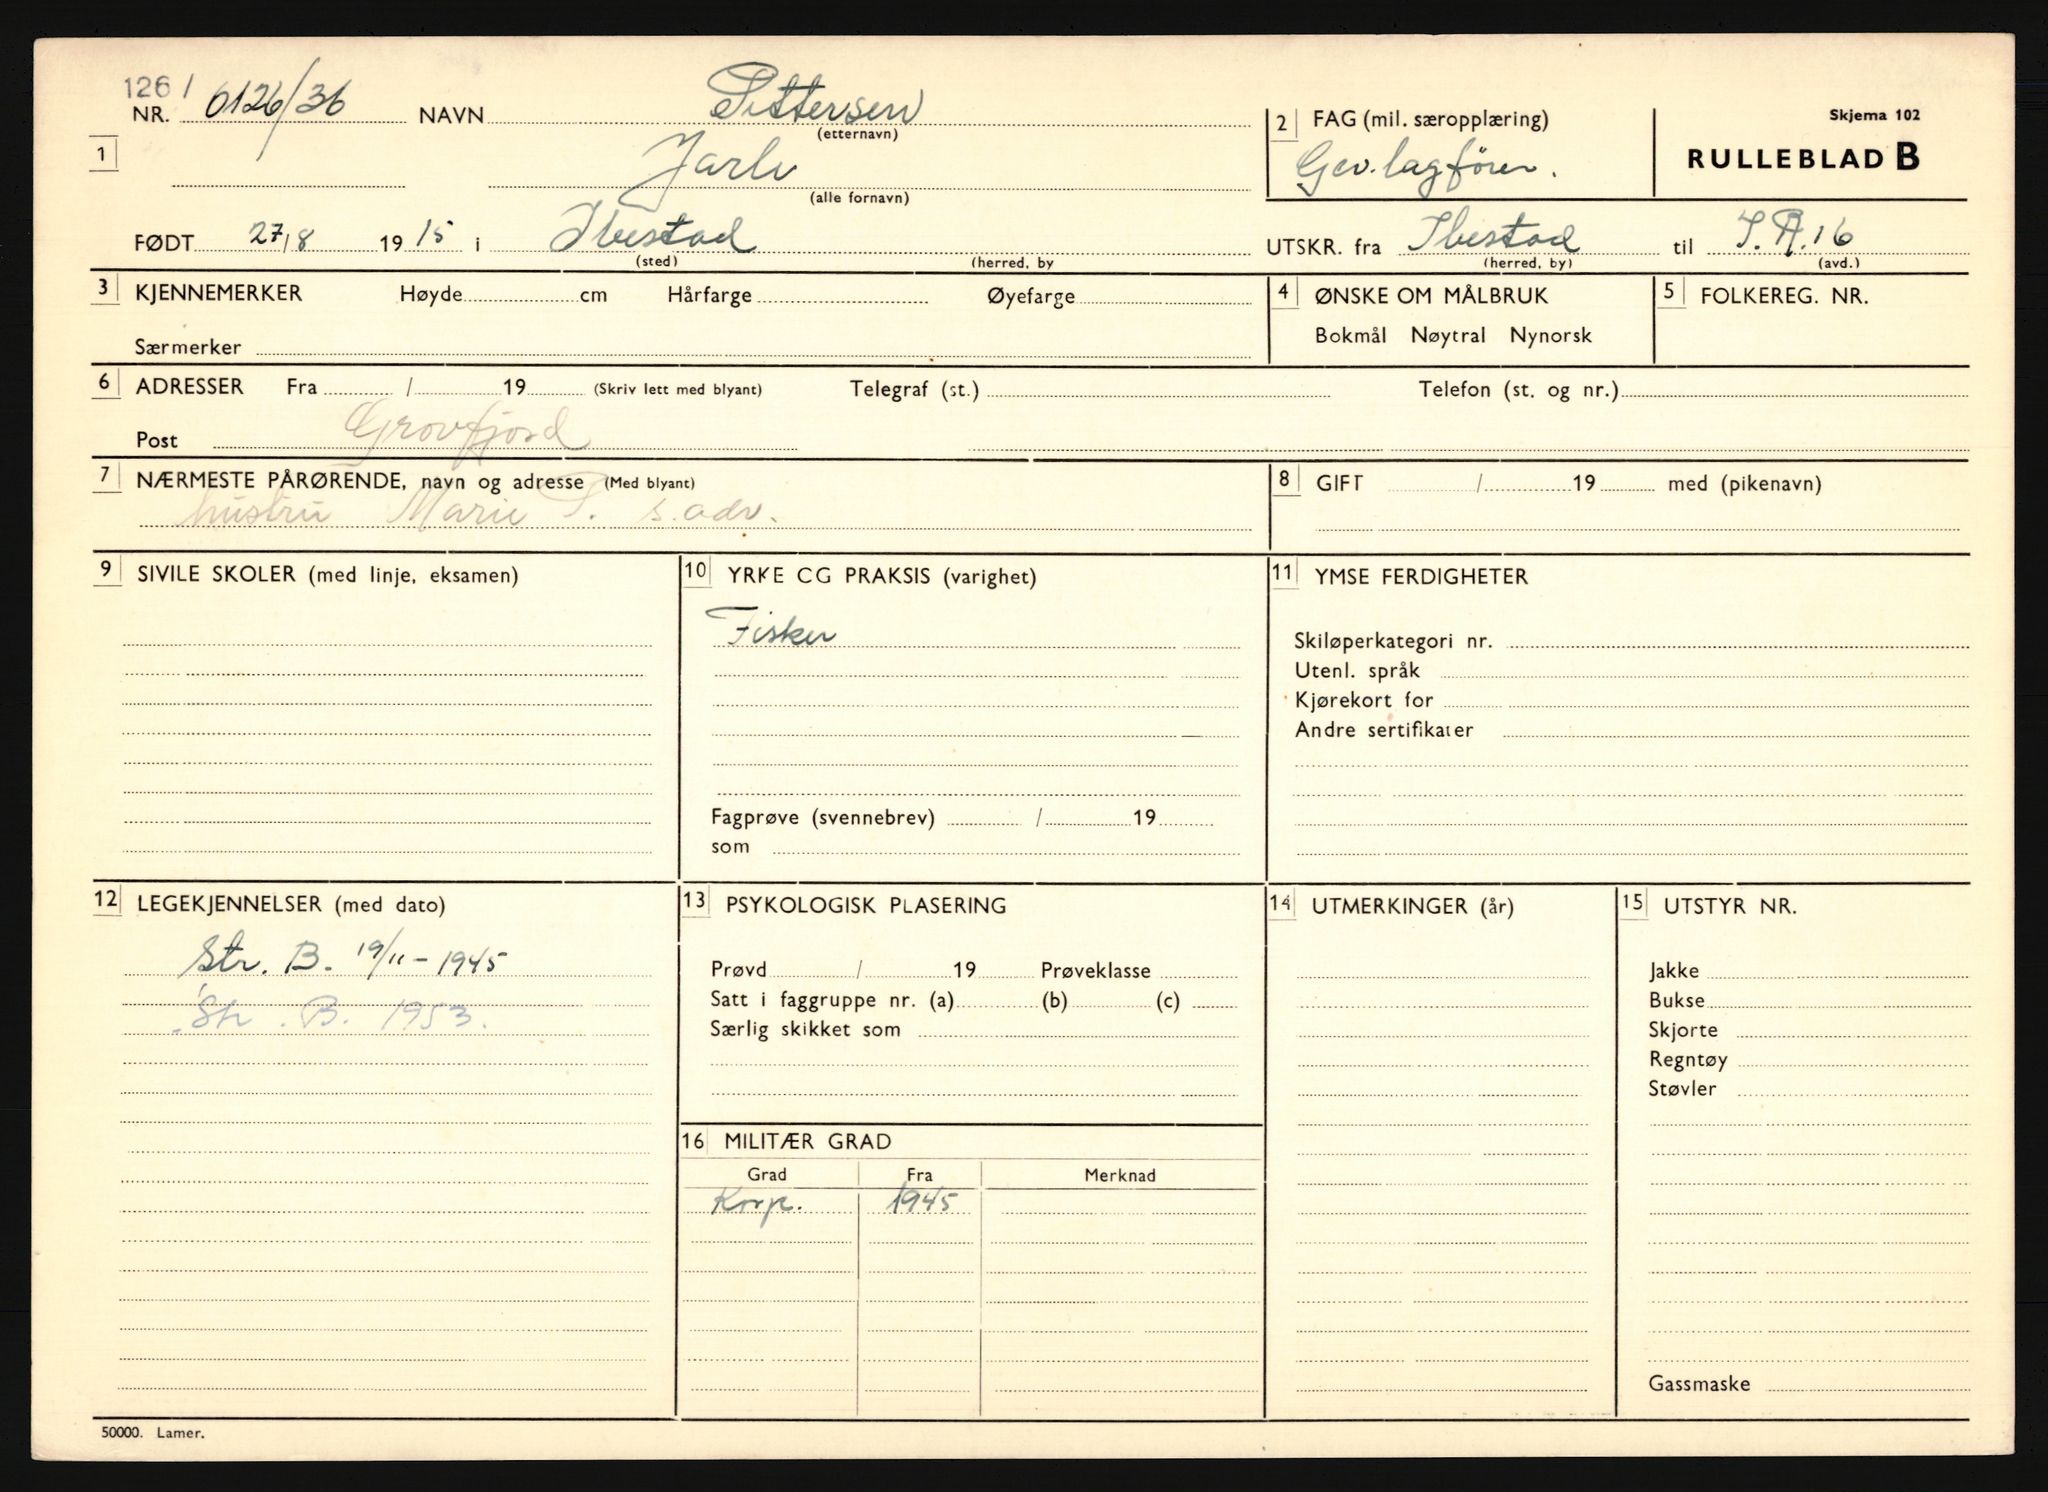 126 /
NR. 0126/36 NAVN Pettersen
(etternavn)
1 Jarle
(alle fornavn)
FØDT 27/8 1915 i Ibestad
(sted) (herred, by
2 FAG (mil. særopplæring)
Gev. lagfører.
Skjema 102
RULLEBLAD B
UTSKR. fra Ibestad til I.R.16
(herred, by) (avd.)
3 KJENNEMERKER Høyde cm Hårfarge Øyefarge
Særmerker
4 ØNSKE OM MÅLBRUK
Bokmål Nøytral Nynorsk
5 FOLKEREG. NR.
6 ADRESSER Fra / 19 (Skriv lett med blyant) Telegraf (st.) Telefon (st. og nr.)
Post Grovfjord
7 NÆRMESTE PÅRØRENDE, navn og adresse (Med blyant)
hustru Marie P. s. adr.
8 GIFT / 19 med (pikenavn)
9 SIVILE SKOLER (med linje, eksamen)
10 YRKE CG PRAKSIS (varighet)
Fisker
Fagprøve (svennebrev) / 19
som
11 YMSE FERDIGHETER
Skiløperkategori nr.
Utenl. språk
Kjørekort for
Andre sertifikater
12 LEGEKJENNELSER (med dato)
Str. B. 19/11-1945
Str. B. 1953.
13 PSYKOLOGISK PLASERING
Prøvd / 19 Prøveklasse
Satt i faggruppe nr. (a) (b) (c)
Særlig skikket som
14 UTMERKINGER (år)
15 UTSTYR NR.
Jakke
Bukse
Skjorte
Regntøy
Støvler
Gassmaske
16 MILITÆR GRAD
Grad Fra Merknad
Korp. 1945
50000. Lamer.